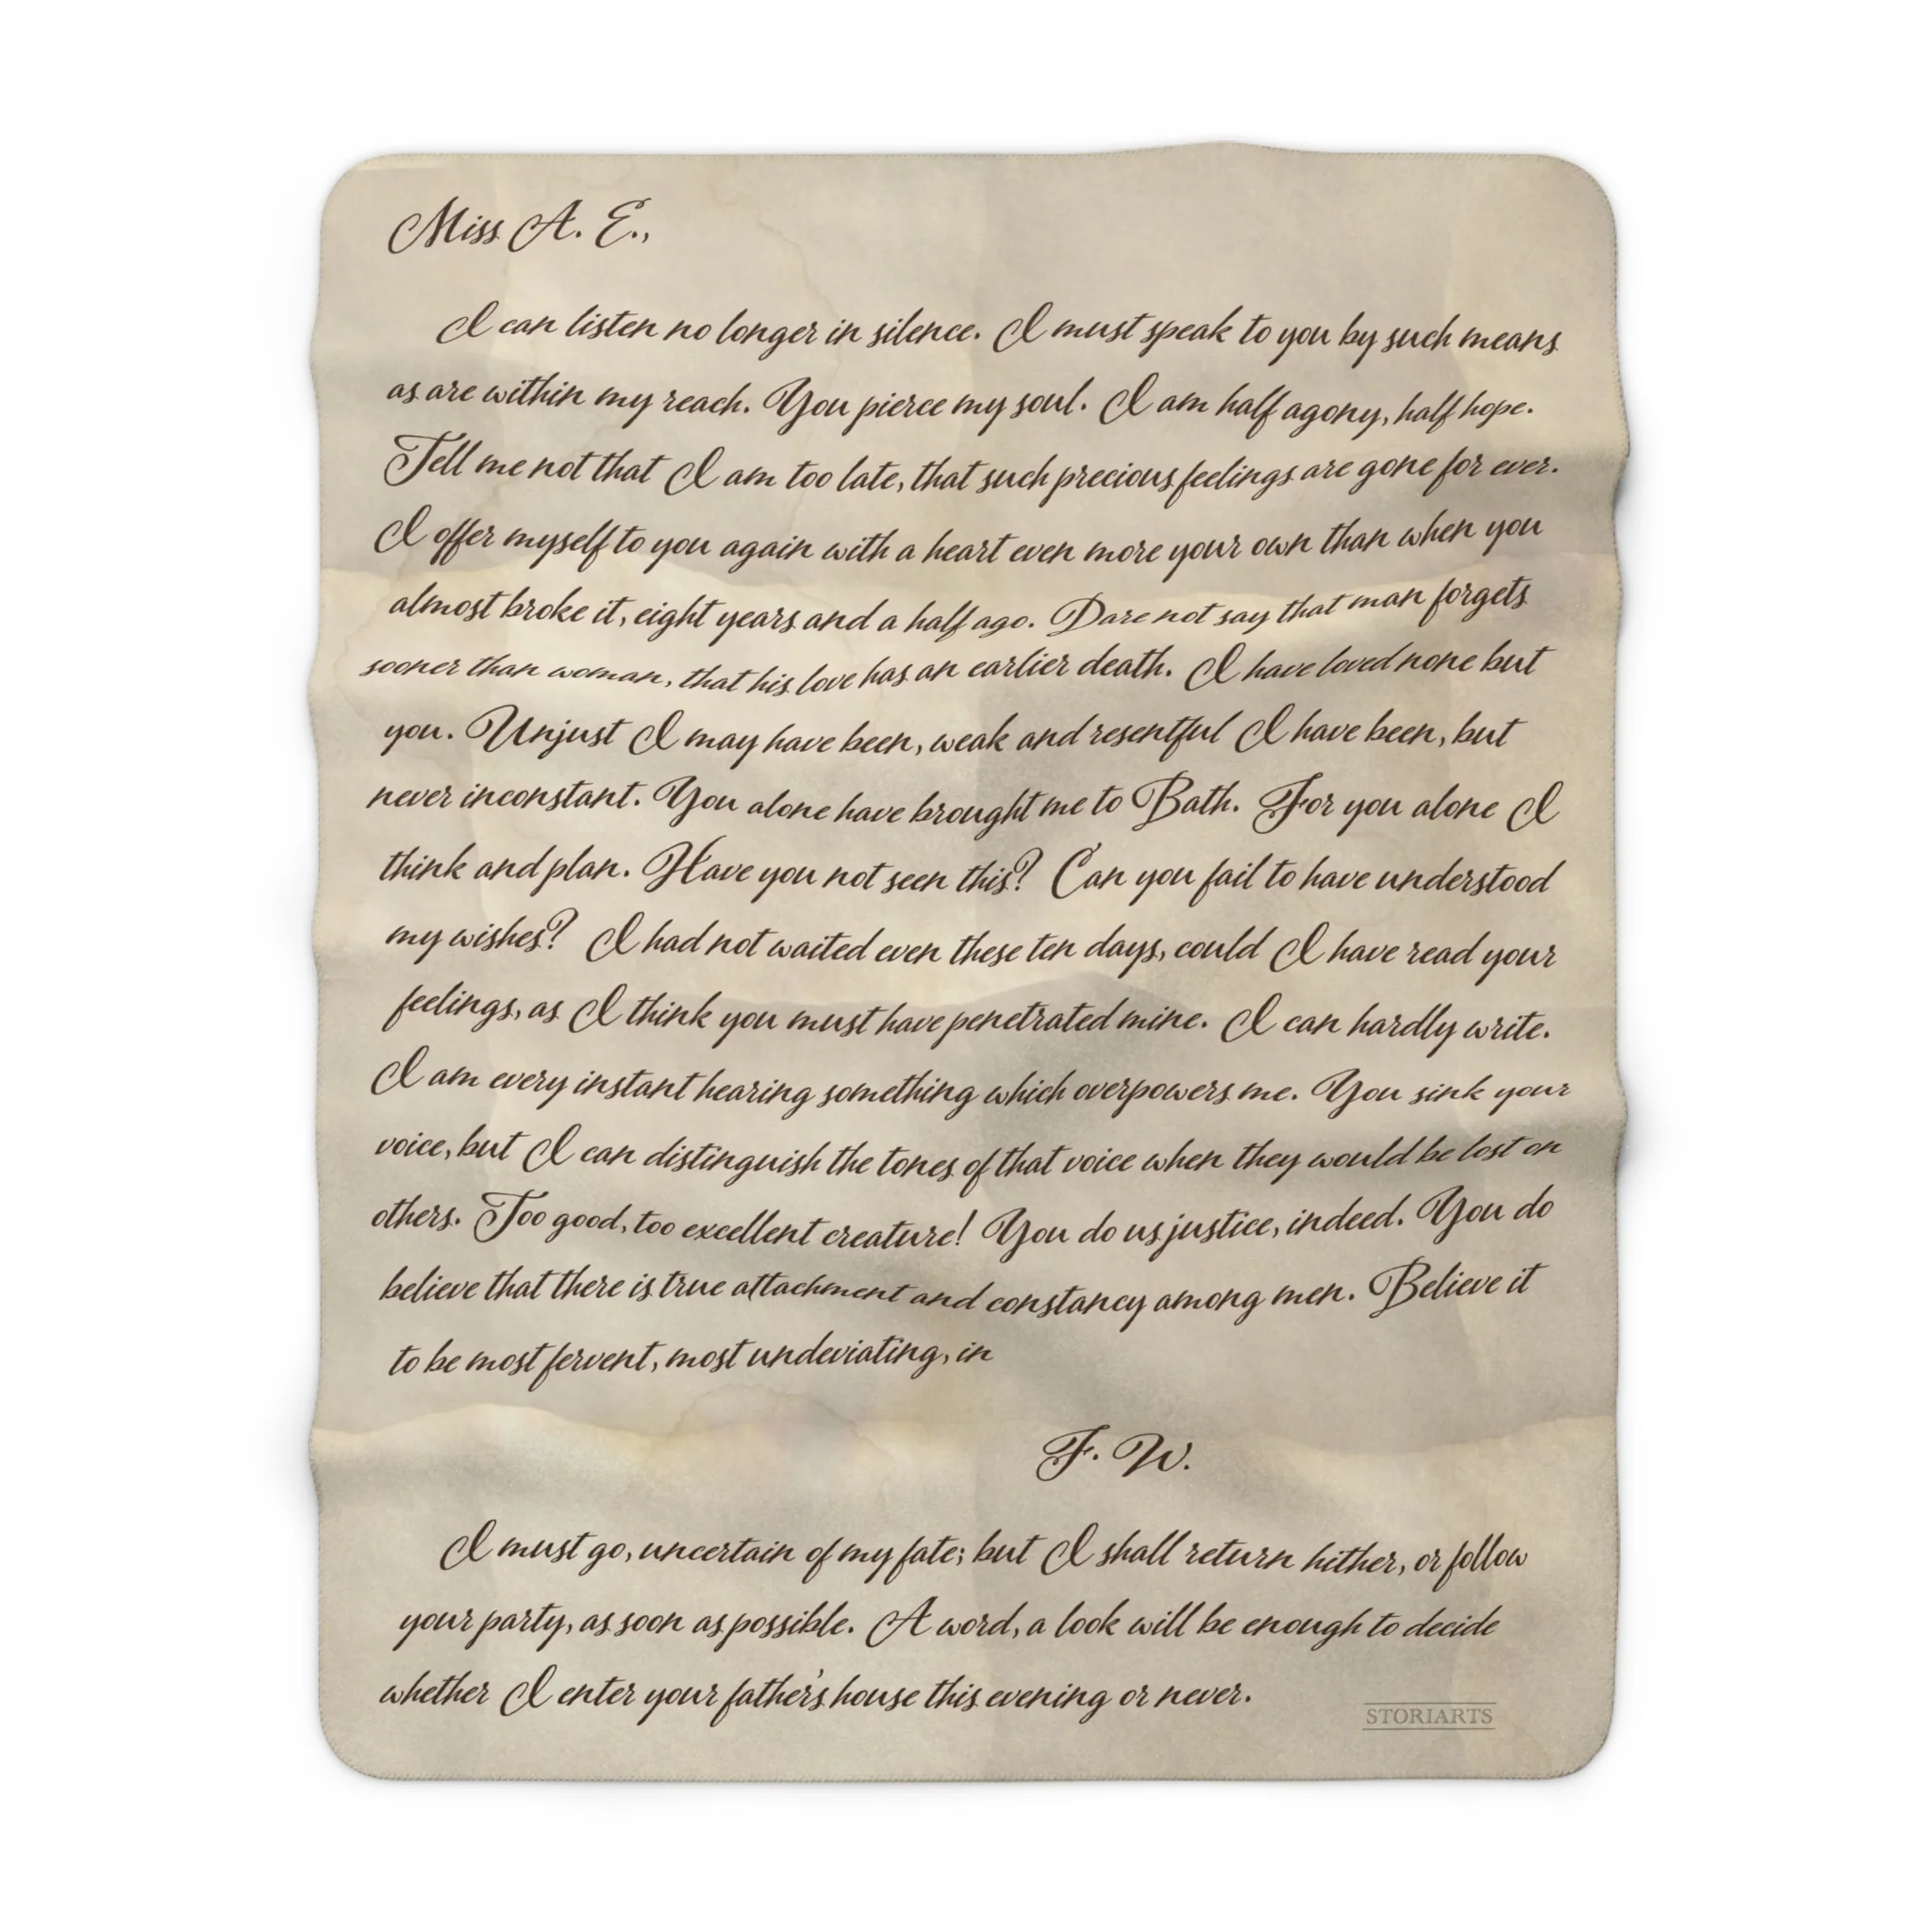 Miss A. E.,
I can listen no longer in silence. I must speak to you by such means
as are within my reach. You pierce my soul. I am half agony, half hope.
Tell me not that I am too late, that such precious feelings are gone for ever.
I offer myself to you again with a heart even more your own than when you
almost broke it, eight years and a half ago. Dare not say that man forgets
sooner than woman, that his love has an earlier death. I have loved none but
you. Unjust I may have been, weak and resentful I have been, but
never inconstant. You alone have brought me to Bath. For you alone I
think and plan. Have you not seen this? Can you fail to have understood
my wishes? I had not waited even these ten days, could I have read your
feelings, as I think you must have penetrated mine. I can hardly write.
I am every instant hearing something which overpowers me. You sink your
voice, but I can distinguish the tones of that voice when they would be lost on
others. Too good, too excellent creature! You do us justice, indeed. You do
believe that there is true attachment and constancy among men. Believe it
to be most fervent, most undeviating, in
F. W.
I must go, uncertain of my fate; but I shall return hither, or follow
your party, as soon as possible. A word, a look will be enough to decide
whether I enter your father's house this evening or never.
STORIARTS